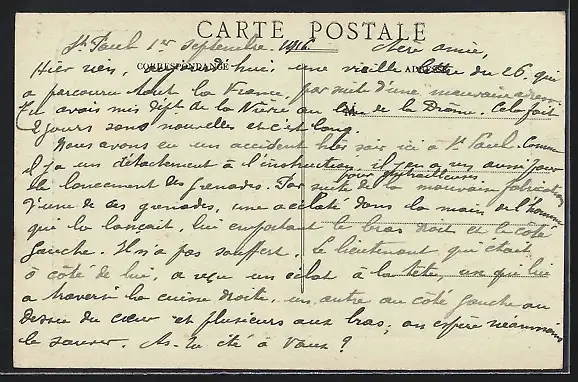 CARTE POSTALE
St Paul 1er septembre. 1916. Chère amie,
CORRESPONDANCE ADRESSE
Hier rien, aujourd'hui une vieille lettre du 26. qui
a parcouru tout la France, par suite d'une mauvaise adresse.
Tu avais mis dipt. de la Nièvre au de la Drôme. Cela fait
2 jours sans nouvelles et c'est long.
Nous avons eu un accident hier soir ici à St Paul. Comme
il y a un détachement à l'instruction, il y en a un aussi pour
pour mitrailleuses.
le lancement des grenades. Par suite de la mauvaise fabrication
d'une de ces grenades, une a éclaté dans la main de l'homme
que la lançait, lui emportant le bras droit et le côté
gauche. Il n'a pas souffert. Le lieutenant qui était
à côté de lui, a reçu un éclat à la tête, un qui lui
a traversé la cuisse droite, un autre au coté gauche au
dessus du cœur et plusieurs aux bras; on espère néanmoins
le sauver. As-tu été à Vaux ?